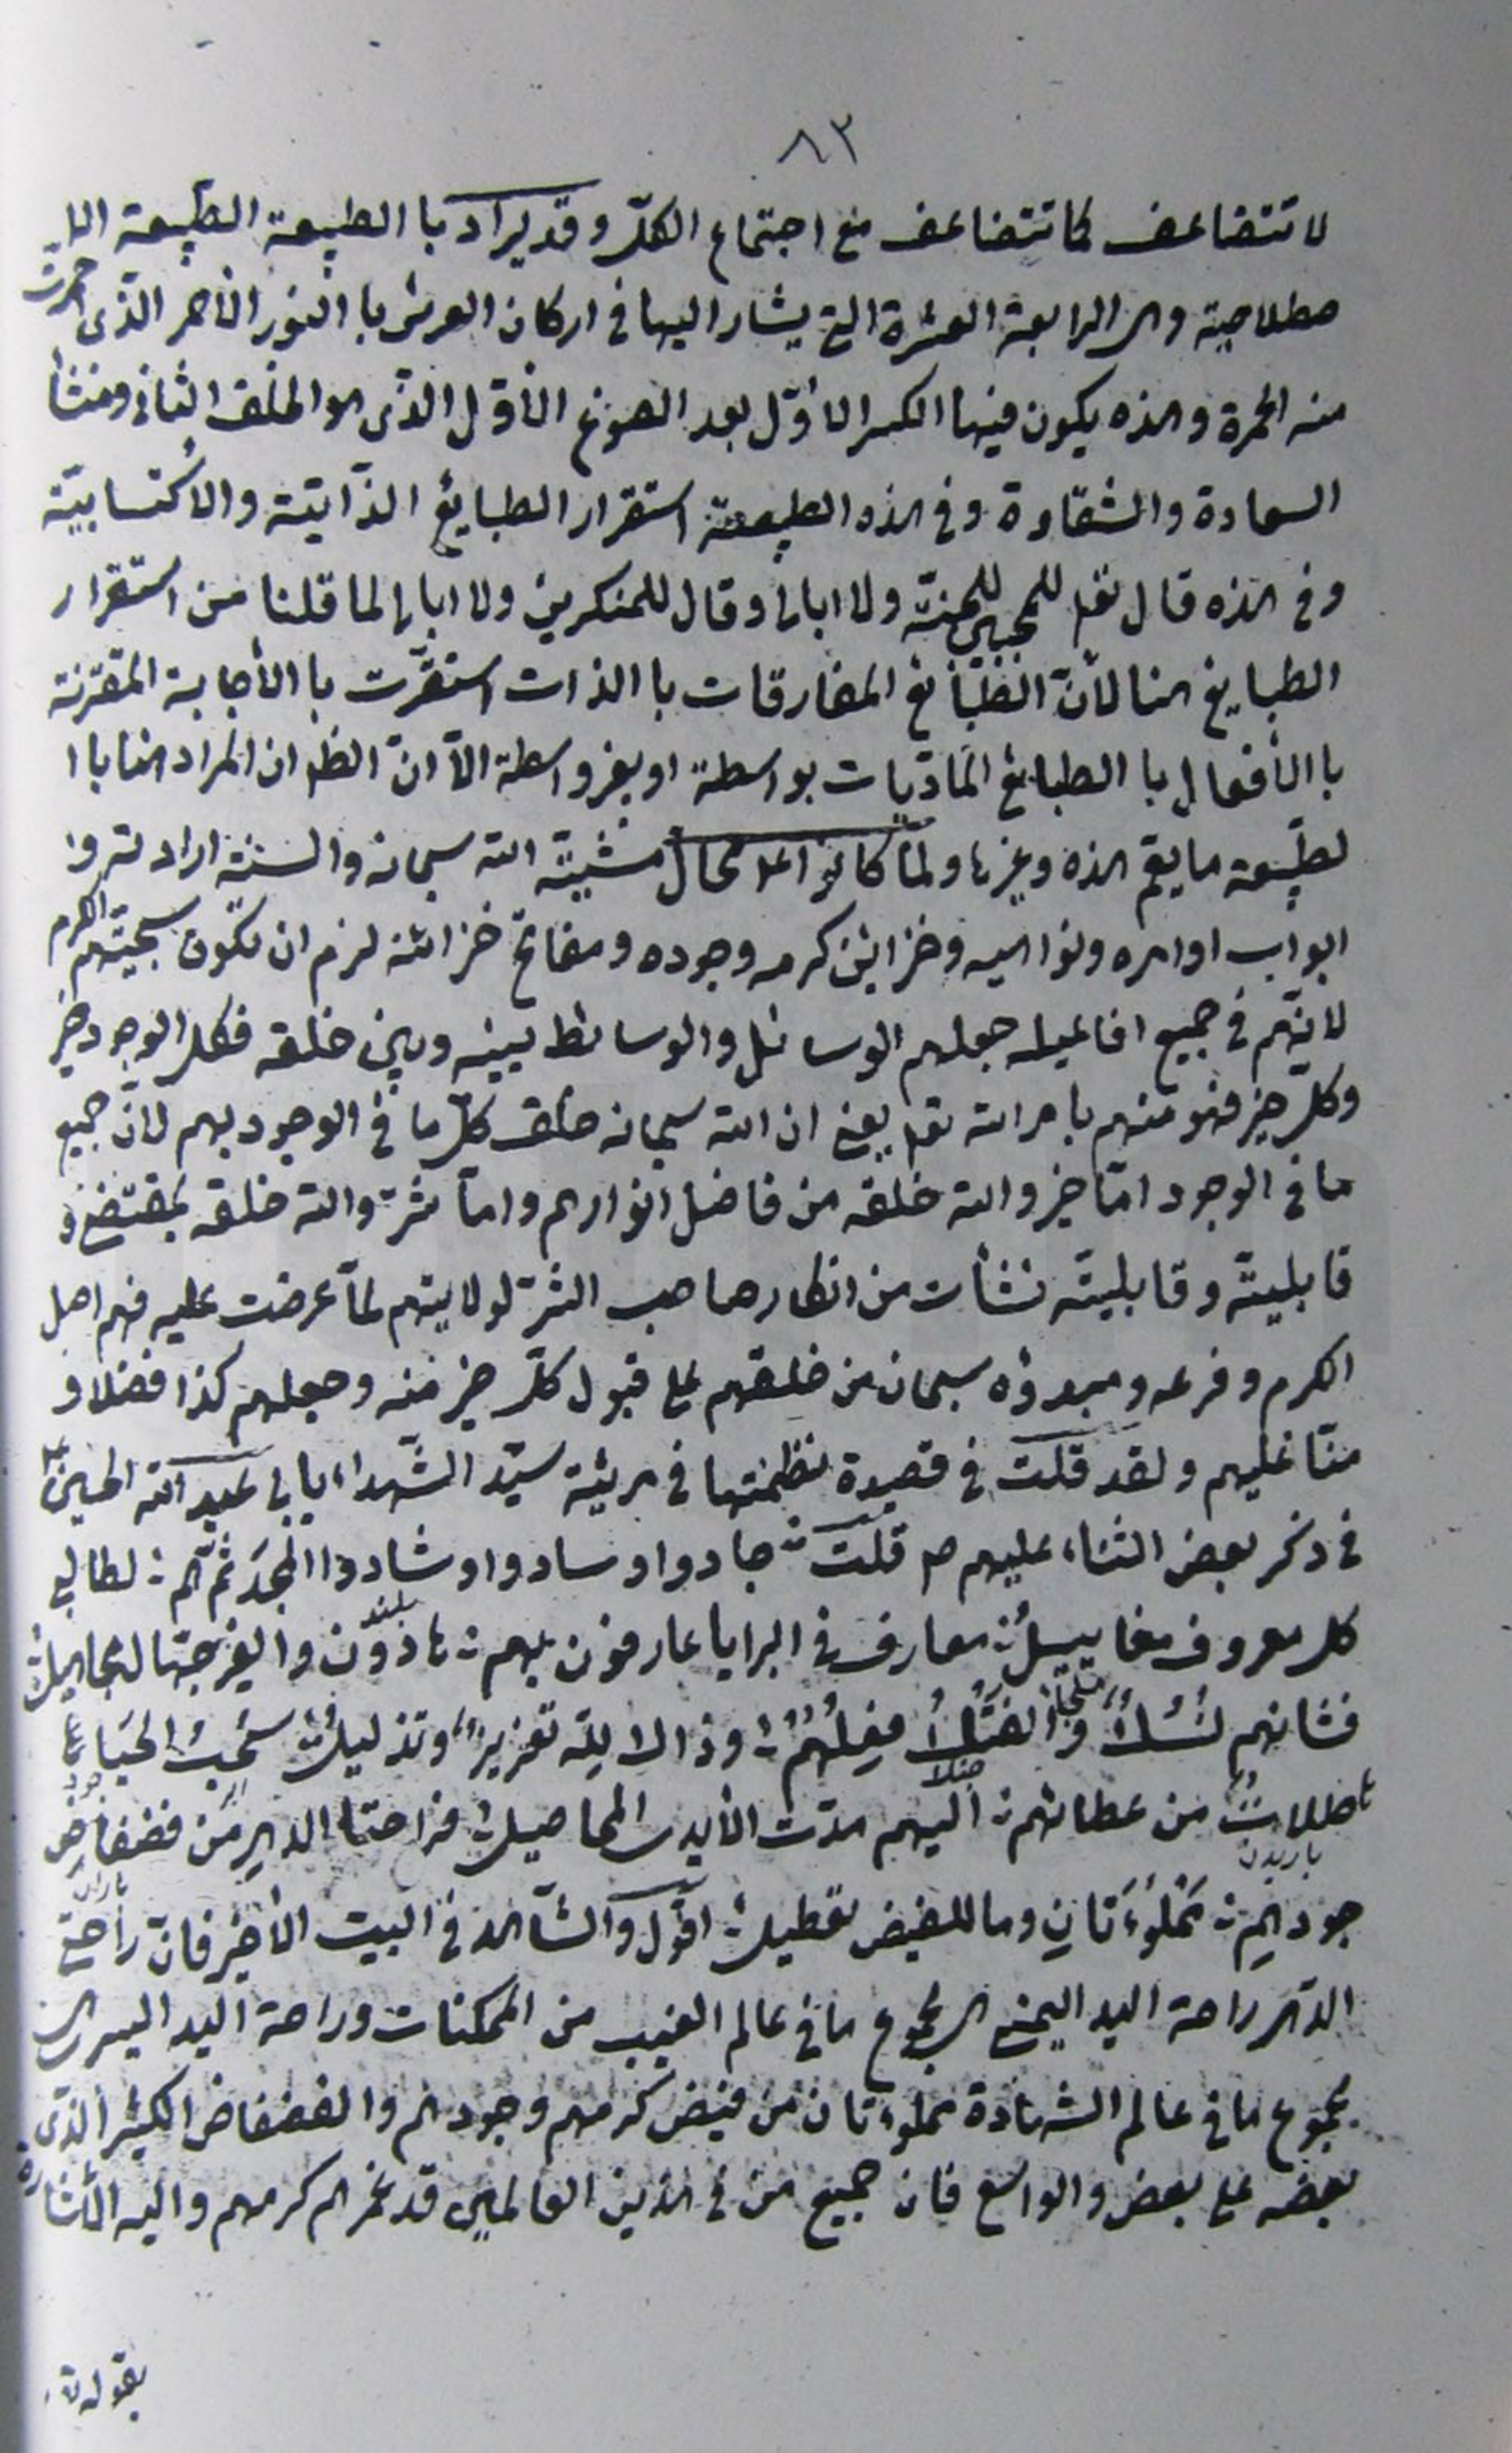 ٨٣
لا تتضاعف كما تتضاعف مع اجتماع الكلّ و قد يراد با الطبيعة الطّبيعة الا
صطلاحية وهى الرابعة العشرة التى يشار اليها فى اركان العرش با النور الأحمر الّذى احمرت
منه الحمرة وهذه يكون فيها الكسر الأوّل بعد الصوغ الأوّل الذّى هو الخلق الثانى ومنشأ
السعادة والشقاوة وفى هذه الطبيعة استقرار الطبايع الذّاتيّة والاكتسابيّة
وفى هذه قال تعلى للمجيبين للجنّة ولا ابالى وقال للمنكرين ولا ابالى لما قلنا من استقرار
الطبايع هنا لأنّ الطبايع المفارقات با الذات استقرّت با الأجابة المقترنة
با الأفعال با الطبايع المادّيات بواسطة او بغير واسطة الاّ انّ الظ ان المراد هنا با ا
لطّبيعة ما يعم هذه وغيرها ولمّا كانوا على محال مشيّة الله سبحانه والسنة ارادته و
ابواب اوامره ونواهيه وخزاين كرمه وجوده ومفاتح خزائنه لزم ان تكون سجيّتهم الكرم
لانّهم فى جميع افاعيله جعلهم الوسائل والوسائط بينه وبين خلقه فكل الوجود خير
وكلّ خير فهو منهم بامر الله تعلى يعنى ان الله سبحانه خلق كلّ ما فى الوجود بهم لانّ جميع
ما فى الوجود امّا خير والله خلقه من فاضل انوارهم وامّا شرّ والله خلقه بمقتضى
قابليته وقابليته نشأت من انكار صاحب الشرّ لولايتهم لمّا عرضت عليه فهم اصل
الكرم وفرعه ومبدؤه سبحان من خلقهم على قبول كلّ خير منه وجعلهم كذا فضلا و
منّا عليهم ولقد قلت فى قصيدة نظمتها فى مرثية سيّد الشّهداء ابى عبد الله الحسين ع
فى ذكر بعض الثناء عليهم قلت جادوا وسادوا وشادوا المجدَ ثمّ هم لطالبى
كل معروف مفاييسل معارف فى البرايا عارفون بهم هادوّن والغير جهّال مجاهيل
فشانهم نُسُكٌ والفتك فعلُهُم وذا لا لله تعزيز وتذليل سُحُبُ الحَيا
هاطلات من عطائهم اليهم مدّت الأيدى المحاصيل فراحتا الدهر من فضفاض
جودهم مملوءتان وما للفيض تعطيل اقول والشّاهد فى البيت الأخير فانّ راحتى
الدّهر راحة اليد اليمنى هى مجموع ما فى عالم الغيب من الممكنات وراحة اليد اليسرى هى
مجموع ما فى عالم الشهادة مملوءتان من فيض كرمهم وجودهم والفضفاض الكثير الذّى
بعضه على بعض والواسع فان جميع من فى هذين العالمين قد غمرهم كرمهم واليه الأشارة
بقوله تع